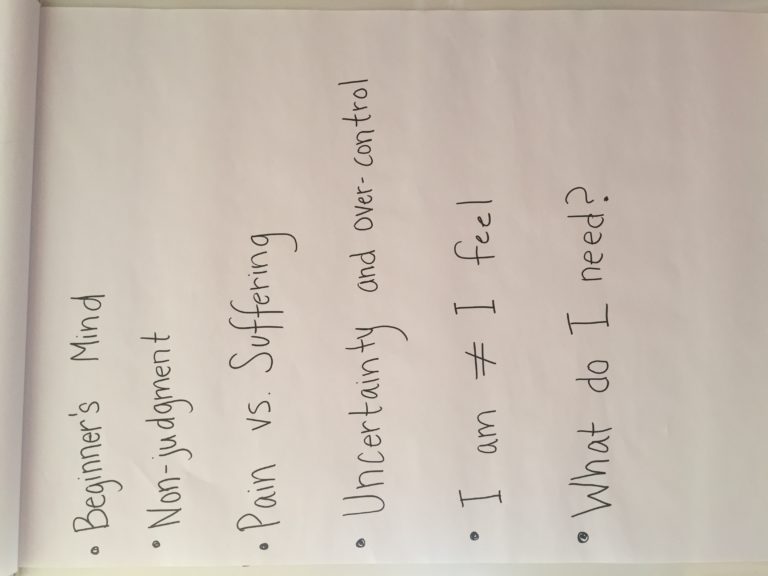 • Beginner's Mind
• Non-judgment
• Pain vs. Suffering
• Uncertainty and over-control
• I am ≠ I feel
• What do I need?